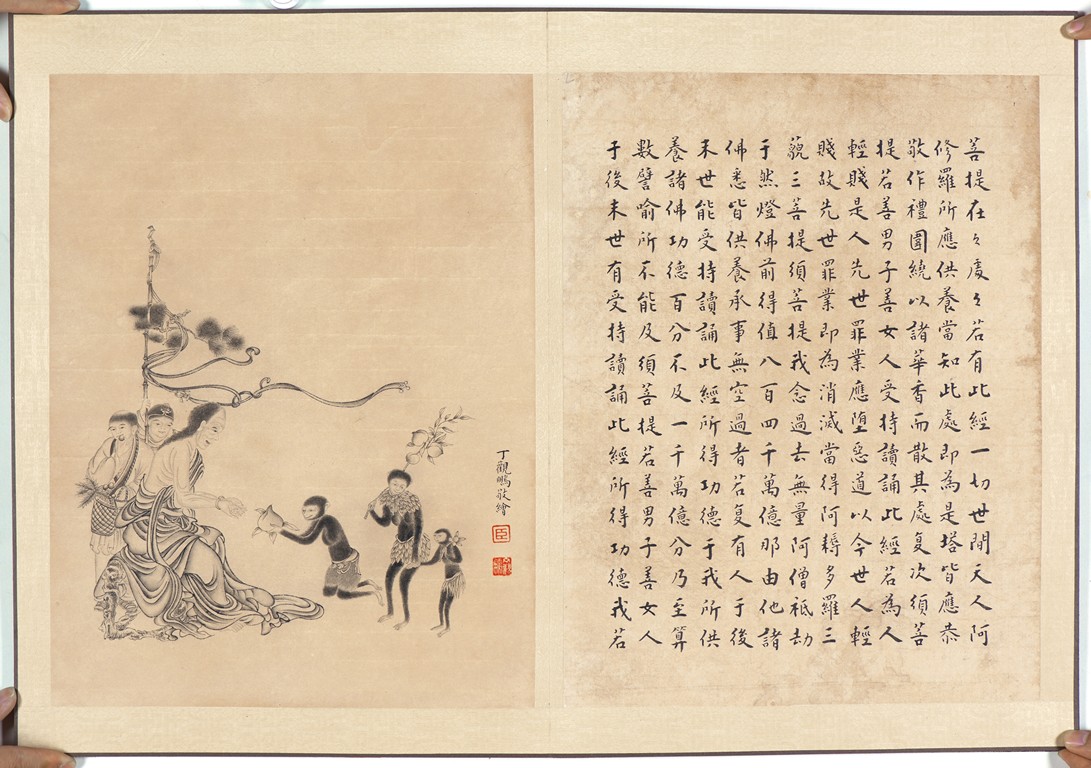 菩提在々處々若有此經一切世間天人阿
修羅所應供養當知此處即為是塔皆應恭
敬作禮圍繞以諸華香而散其處復次須菩
提若善男子善女人受持讀誦此經若為人
輕賤是人先世罪業應墮惡道以今世人輕
賤故先世罪業即為消滅當得阿耨多羅三
藐三菩提須菩提我念過去無量阿僧祇劫
于然燈佛前得值八百四千萬億那由他諸
佛悉皆供養承事無空過者若復有人于後
末世能受持讀誦此經所得功德于我所供
養諸佛功德百分不及一千萬億分乃至算
數譬喻所不能及須菩提若善男子善女人
于後末世有受持讀誦此經所得功德我若
丁觀鵬敬繪
臣